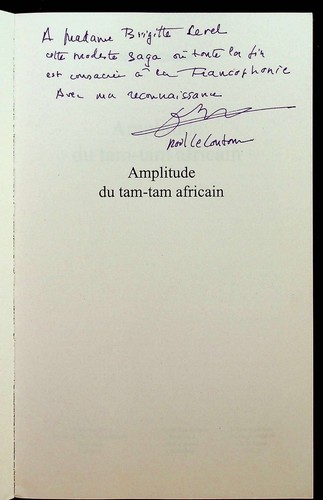 A Madame Brigitte Level
cette modeste saga où toute la fin
est consacrée à la Francophonie
Avec ma reconnaissance
Amplitude
du tam-tam africain